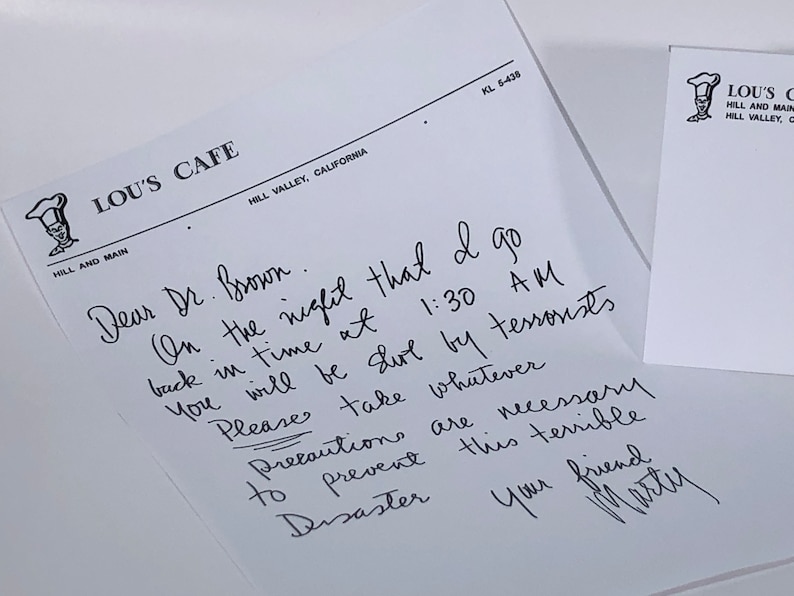 LOU'S CAFE
KL 5-438
HILL AND MAIN • HILL VALLEY, CALIFORNIA •
Dear Dr. Brown.
On the night that I go
back in time at 1:30 AM
you will be shot by terrorists
Please take whatever
precautions are necessary
to prevent this terrible
Disaster
Your friend
Marty
LOU'S C
HILL AND MAIN
HILL VALLEY, C